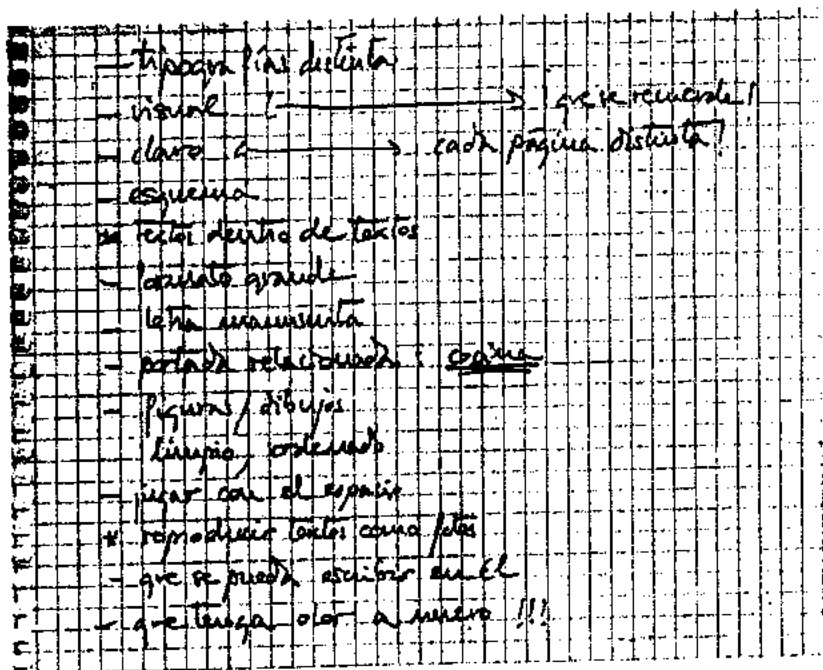 - tipografías distinta
- visual ! → que se recuerde!
- claro → cada página distinta!
- esquema
* textos dentro de textos
- formato grande
- letra manuscrita
- portada relacionada: cocina
- figuras / dibujos
limpio, ordenado
- jugar con el espacio
* reproducir textos como fotos
- que se pueda escribir en él
- que tenga olor a nuevo !!!